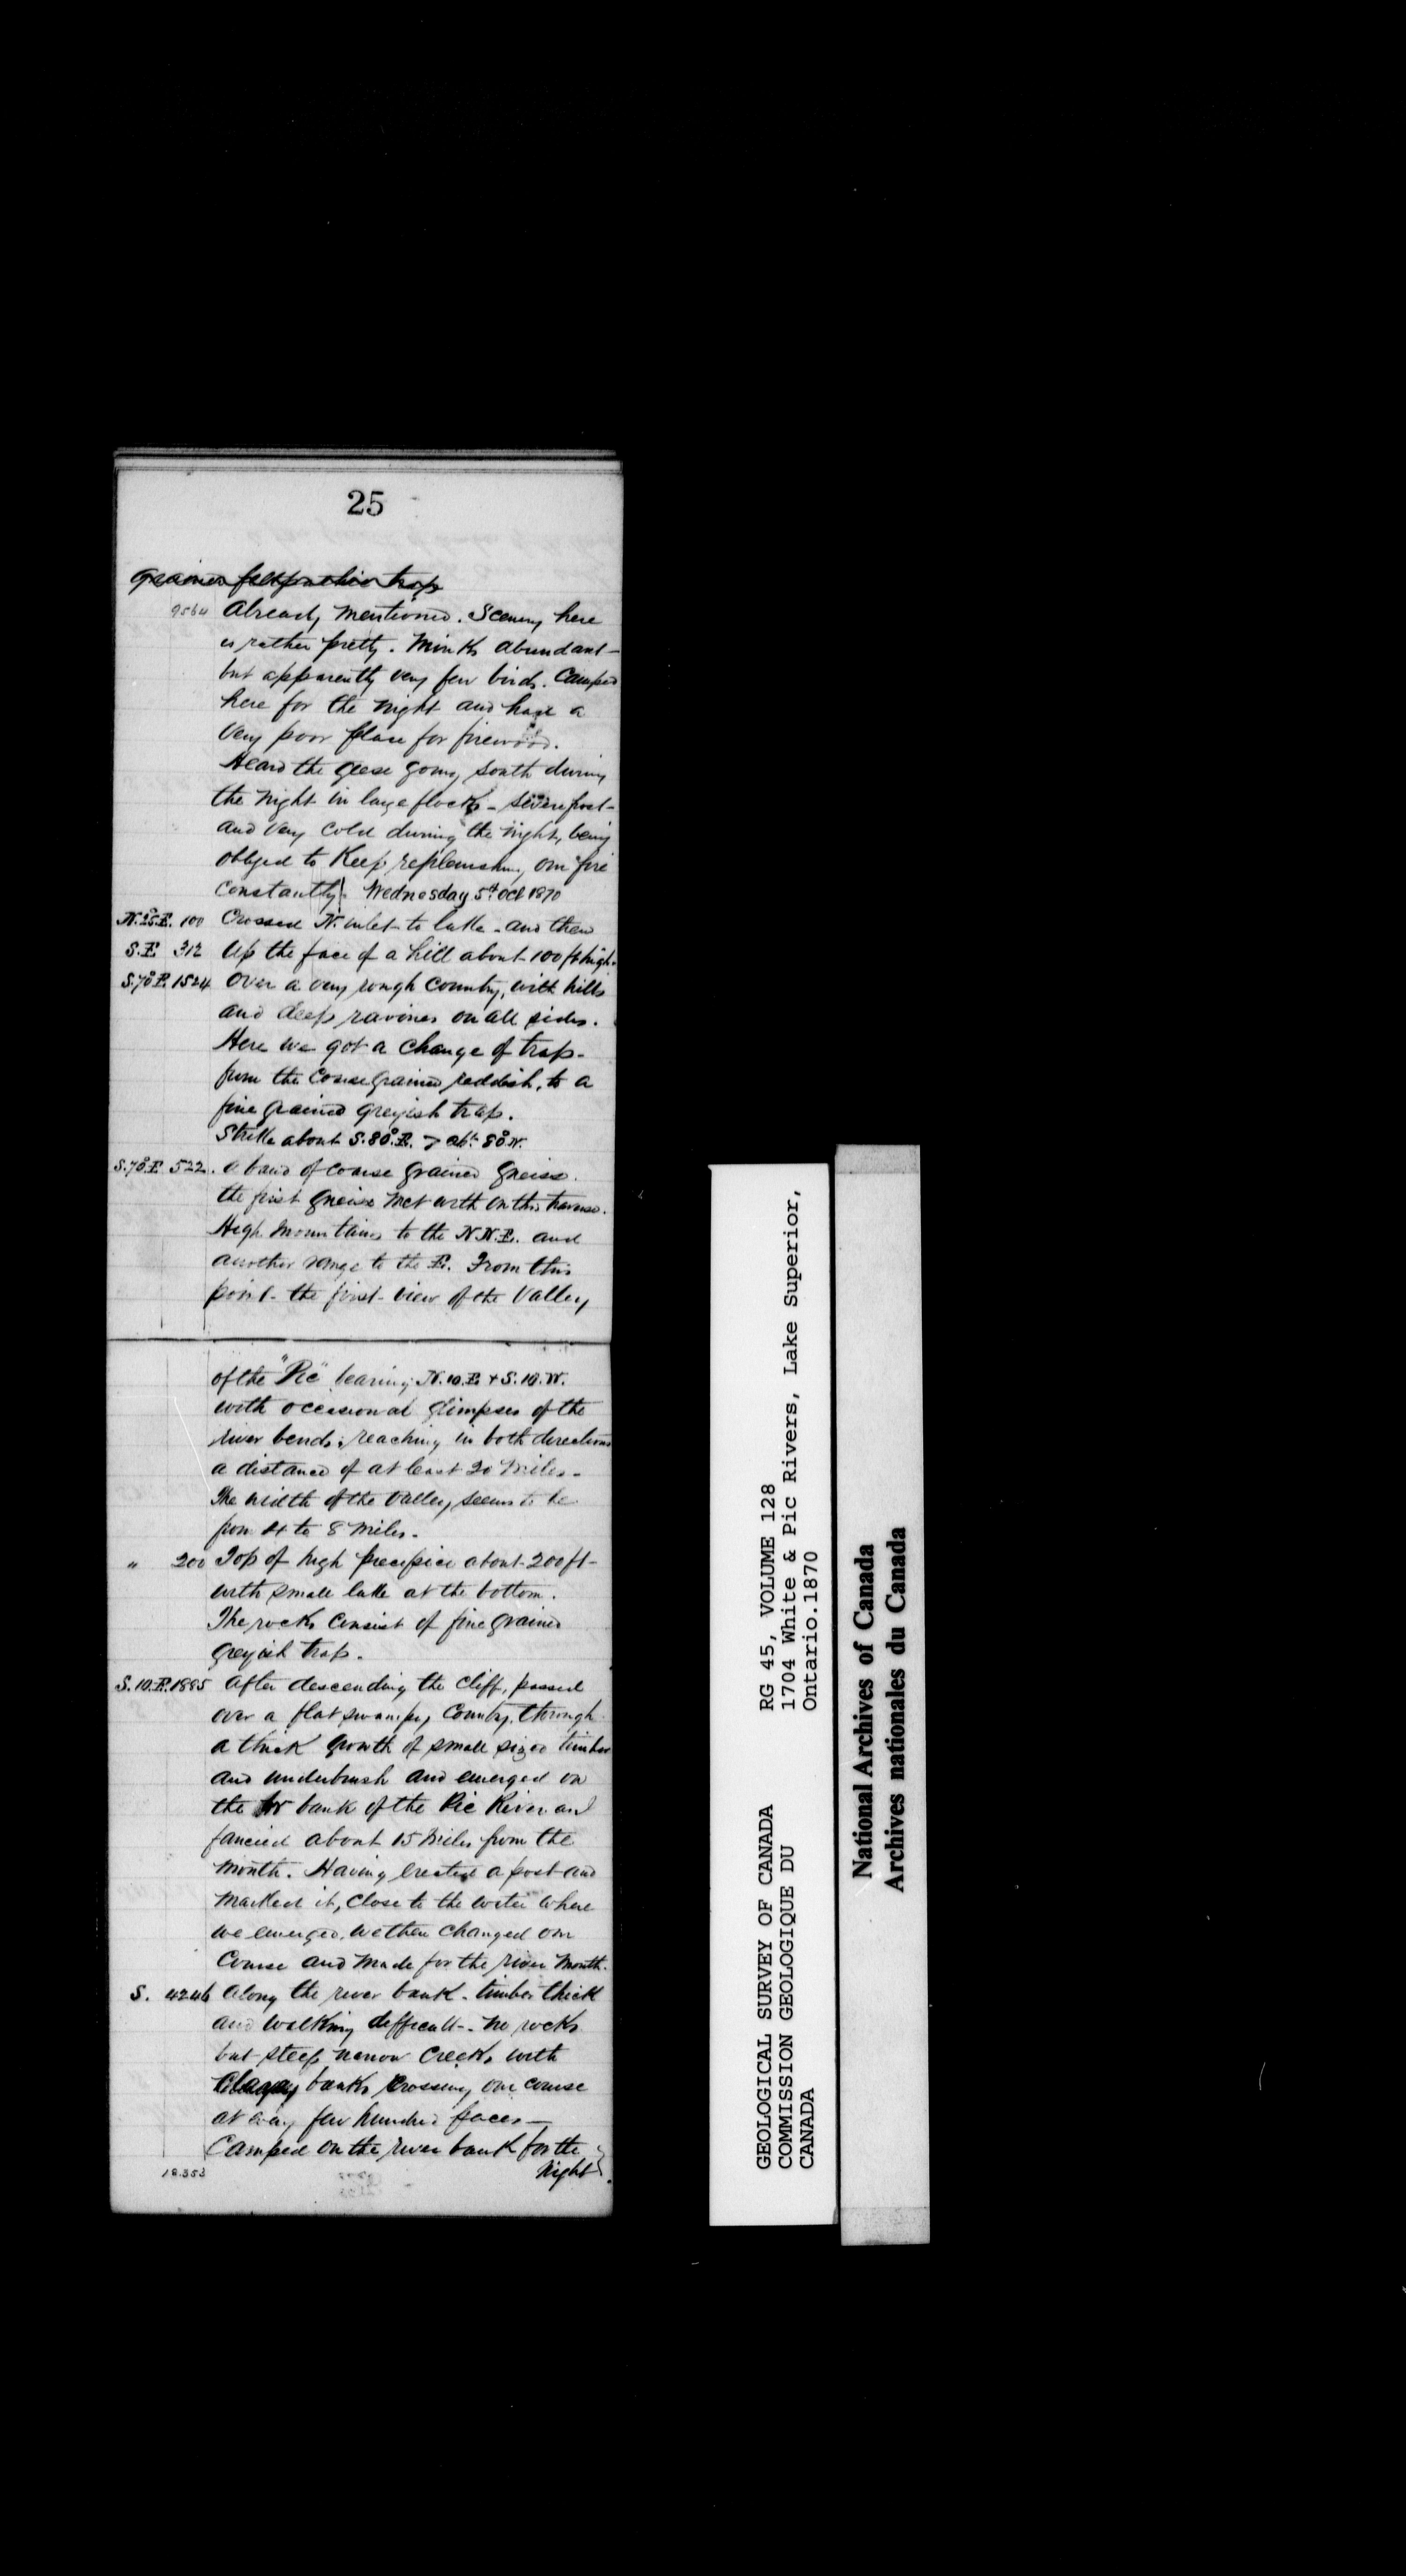 25
grained felspathic trap
9564 Already mentioned. Scenery here
is rather pretty. Minks abundant –
but apparently very few birds. Camped
here for the night and have a
very poor place for firewood.
Heard the geese going south during
the night in large flocks – severe frost –
and very cold during the night, being
obliged to keep replenishing our fire
constantly. Wednesday 5th Oct 1870
N. 25°E. 100 Crossed N. inlet to lake – and then
S.E 312 Up the face of a hill about 100 ft high.
S.70°E. 1524 Over a very rough country, with hills
and deep ravines on all sides.
Here we got a change of trap –
from the coarse grained reddish, to a
fine grained greyish trap.
Strike about S.80°E. > abt 80°N.
S.70°E 522. a band of coarse grained gneiss.
the first gneiss met with on this traverse.
High mountains to the N.N.E. and
another range to the E. From this
point – the first view of the Valley
of the "Pic" bearing N.10.E. + S.10.W.
with occasional glimpses of the
river bends, reaching in both directions
a distance of at least 20 miles –
The width of the Valley, seems to be
from 4 to 8 miles.
" 200 Top of high precipice about 200 ft –
with small lake at the bottom.
The rocks consist of fine grained
greyish trap.
S. 10.E. 1885 After descending the cliff, passed
over a flat swampy country, through
a thick growth of small sized timber
and underbrush and emerged on
the W bank of the Pic River and
fancied about 15 miles from the
mouth. Having erected a post and
marked it, close to the water where
we emerged, we then changed our
course and made for the river mouth.
S. 4246 Along the river bank – timber thick
and walking difficult – no rocks
but steep narrow creeks with
Clayey banks crossing our course
at every few hundred paces –
Camped on the river bank for the
18.353 Night.
GEOLOGICAL SURVEY OF CANADA
COMMISSION GEOLOGIQUE DU
CANADA
RG 45, VOLUME 128
1704 White & Pic Rivers, Lake Superior,
Ontario.1870
National Archives of Canada
Archives nationales du Canada